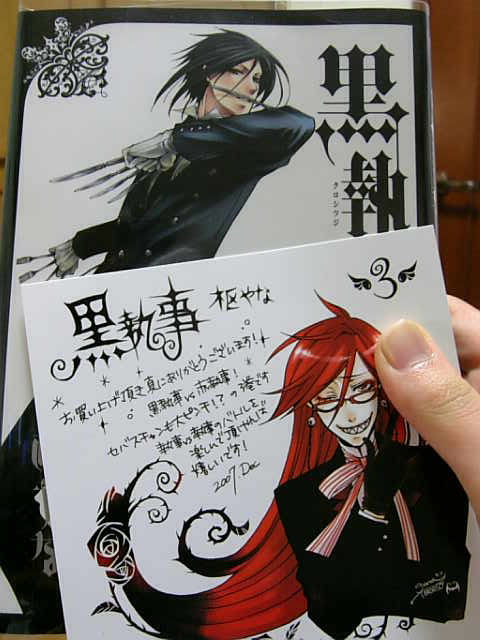 黒執
クロシツジ
黒執事 枢やな
3
お買い上げ頂き真にありがとうございます!
黒執事 vs 赤執事!
セバスチャン大ピンチ!?の巻です
執事vs執事のバトルを
楽しんで頂ければ
嬉しいです!
2007. Dec